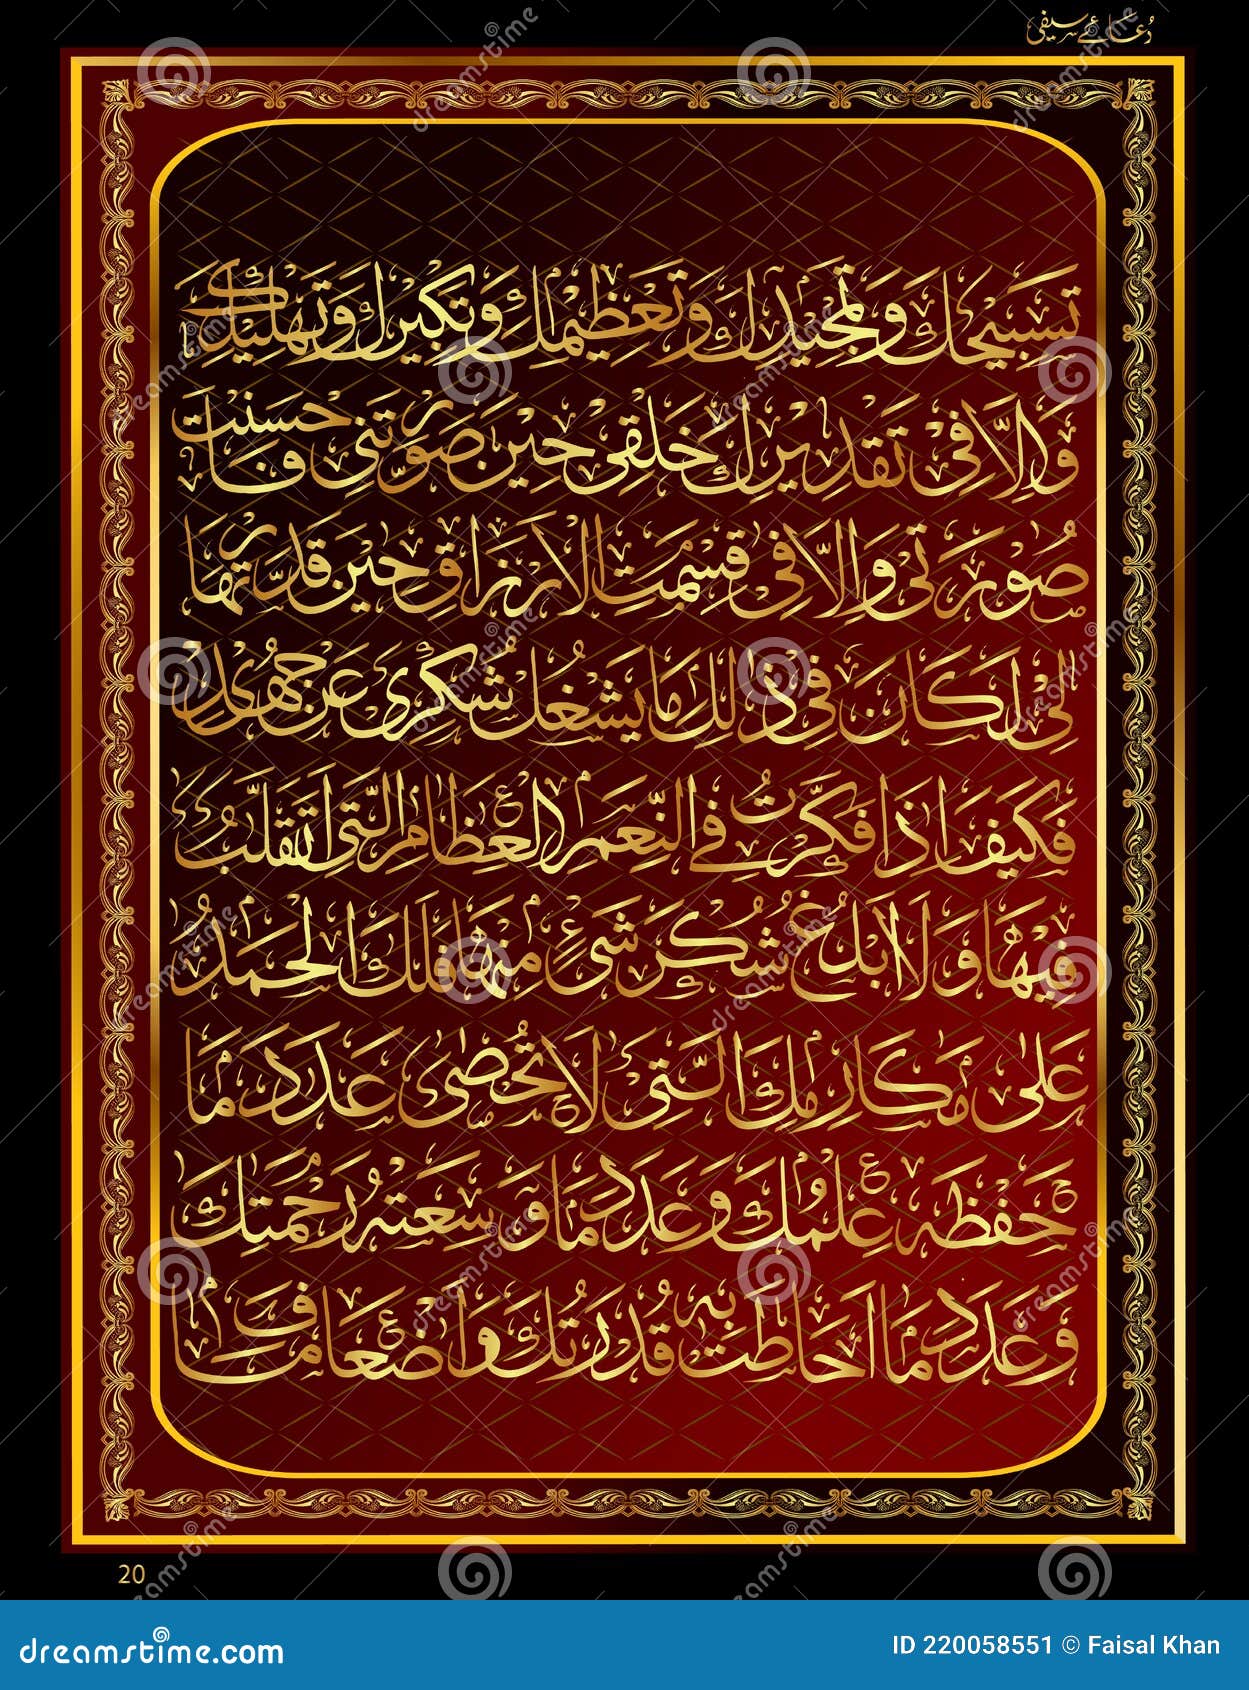 دُعائے سیفی
تَسْبِيْحِكَ وَتَمْجِيْدِكَ وَتَعْظِيْمِكَ وَتَكْبِيْرِكَ وَتَهْلِيْلِكَ
وَاِلَّا فِيْ تَقْدِيْرِكَ خَلْقِيْ حِيْنَ صَوَّرْتَنِيْ فَاَحْسَنْتَ
صُوْرَتِيْ وَاِلَّا فِيْ قِسْمَتِ الْاَرْزَاقِ حِيْنَ قَدَّرْتَهَا
لِيْ لَكَانَ فِيْ ذٰلِكَ مَا يَشْغَلُ شُكْرِيْ عَنْ جُهْدِيْ
فَكَيْفَ اِذَا فَكَّرْتُ فِي النِّعَمِ الْعِظَامِ الَّتِيْ اَتَقَلَّبُ
فِيْهَا وَلَا اَبْلُغُ شُكْرَ شَيْءٍ مِنْهَا فَلَكَ الْحَمْدُ
عَلٰى مَكَارِمِكَ الَّتِيْ لَا تُحْصٰى عَدَدَ مَا
حَفِظَهٗ عِلْمُكَ وَعَدَدَ مَا وَسِعَتْهُ رَحْمَتُكَ
وَعَدَدَ مَا اَحَاطَتْ بِهٖ قُدْرَتُكَ وَاَضْعَافَ مَا
20
dreamstime.com
ID 220058551 © Faisal Khan